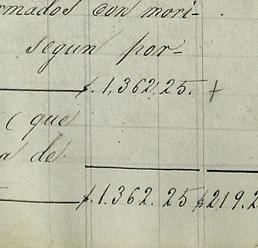 rmados con mori-
segun por-
$.1,362.25. +
(que
a de
$.1.362.25 $219.2